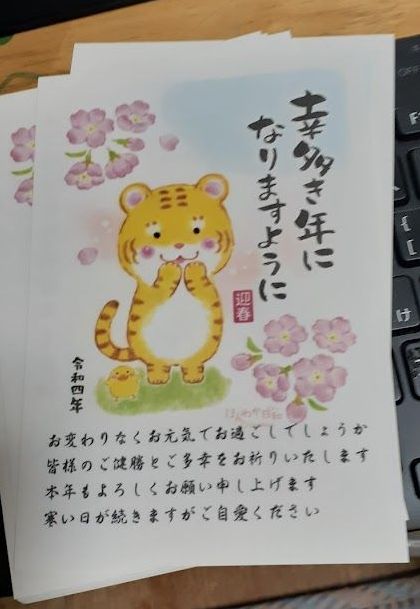 幸多き年に
なりますように
迎春
令和四年
ほんわか日和
お変わりなくお元気でお過ごしでしょうか
皆様のご健勝とご多幸をお祈りいたします
本年もよろしくお願い申し上げます
寒い日が続きますがご自愛ください
け